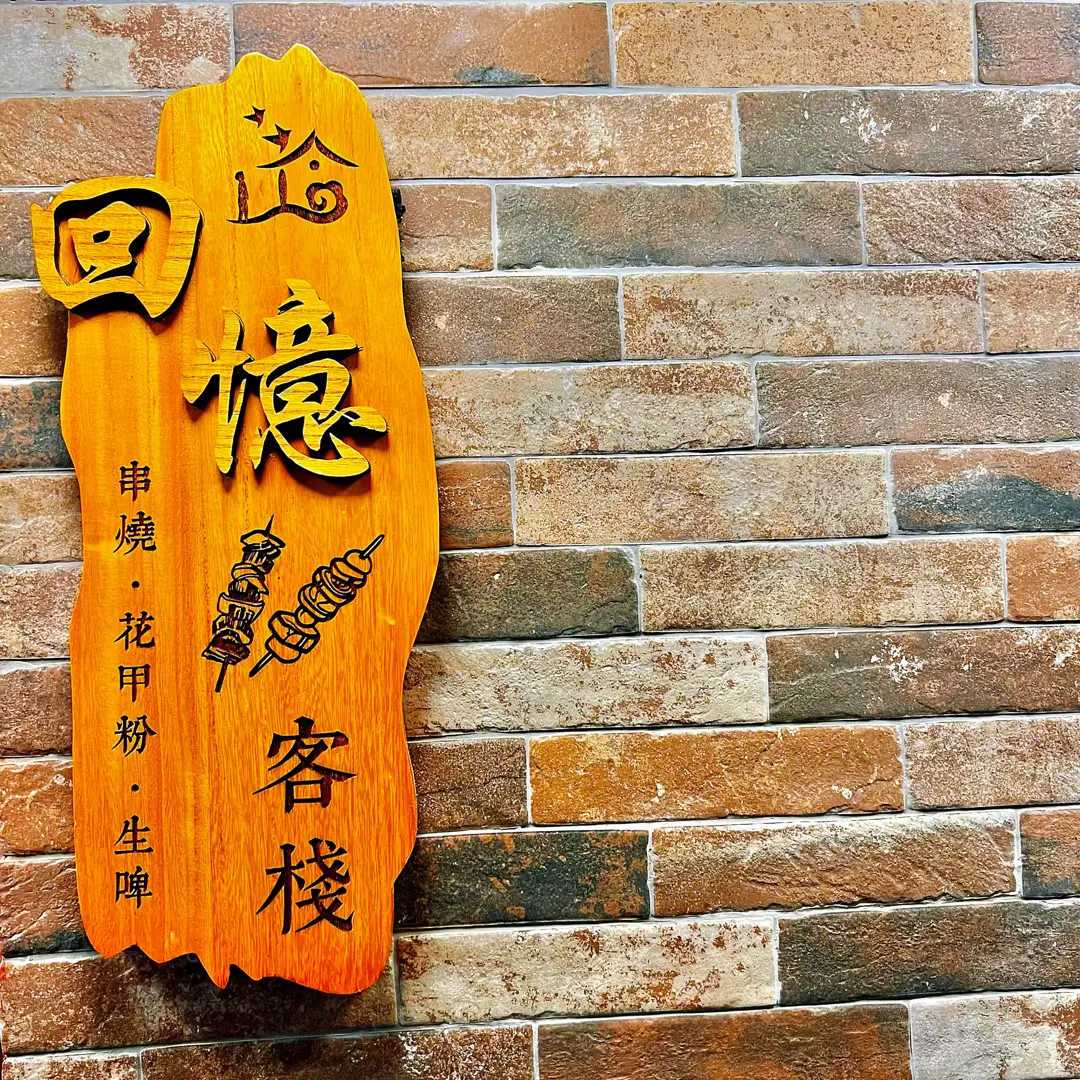 回憶
客棧
串燒·花甲粉·生啤